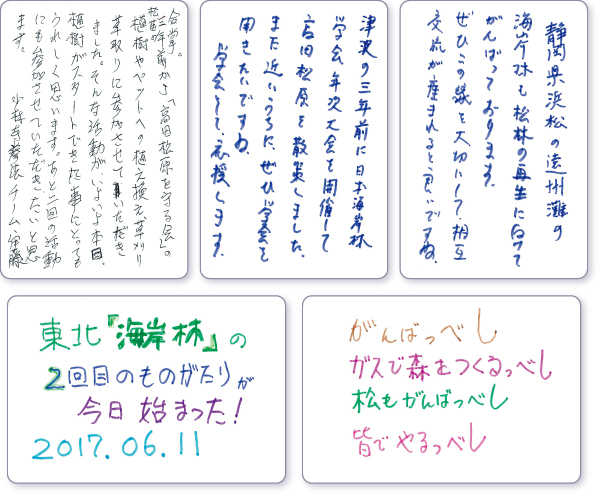 静岡県浜松の遠州灘の
海岸林も松林の再生に向けて
がんばっております。
ぜひこの縁を大切にして、相互
交流が産まれると良いですね。
津波の三年前に日本海岸林
学会年次大会を開催して
高田松原を散策しました。
また近いうちに、ぜひ学会を
開きたいですね。
学会として応援します。
合掌。
三年前から「高田松原を守る会」の
松苗の植樹やペントへの植え換え草刈り
草取りに参加させていただき
ました。そんな活動が、いよいよ本日、
植樹がスタートできた事にとっても
うれしく思います。あと二回の活動
にも参加させていただきたいと思
ます。
少林寺拳法チーム
東北「海岸林」の
2回目のものがたりが
今日 始まった!
2017.06.11
がんばっぺし
ガスで森をつくるっぺし
松もがんばっぺし
皆でやるっぺし